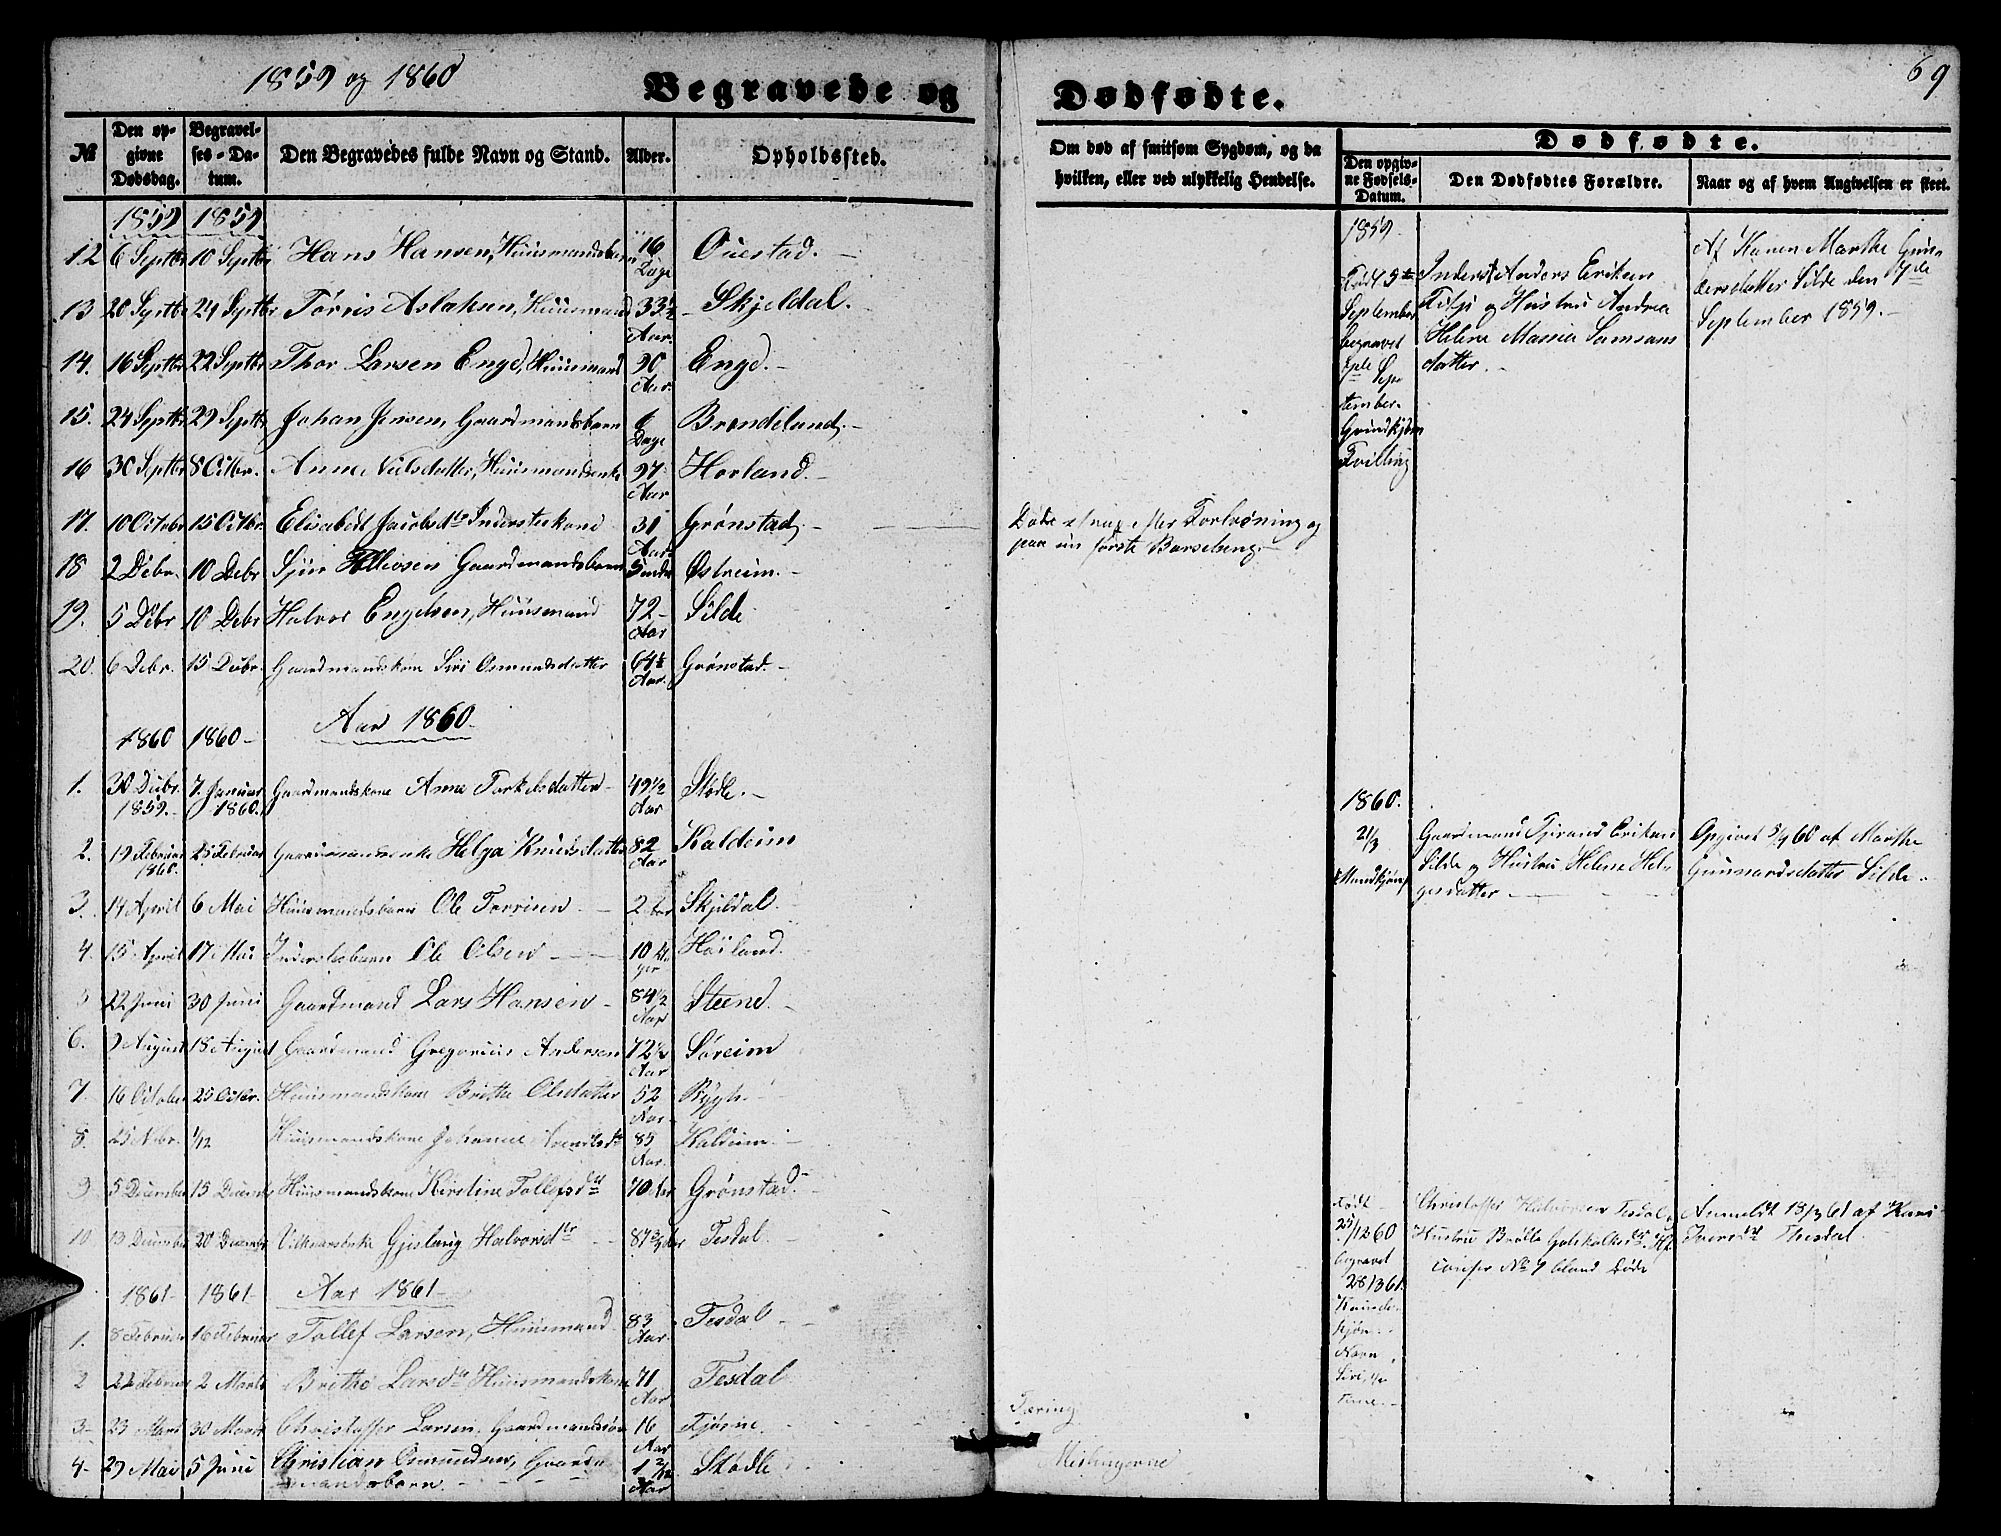 1859 og 1860
Begravede og
Dødfødte.
69
№
Den opgivne Dødsdag.
Begravelses-Datum.
Den Begravedes fulde Navn og Stand.
Alder.
Opholdssted.
Om død af smitsom Sygdom, og da hvilken, eller ved ulykkelig Hendelse.
Dødfødte.
Den opgivne Fødsels-Datum.
Den Dødfødtes Forældre.
Naar og af hvem Angivelsen er skeet.
1859 1859
12 6 Septbr 10 Septbr Hans Hansen, Huusmandsbarn 16 Dage
13 20 Septbr 24 Septbr Tørris Aslaksen, Huusmand 33½ Aar. Skjeldal.
14. 16 Septbr 22 Septbr Thor Larsen Engd, Huusmand 90 Aar. Engd.
15. 24 Septbr 29 Septbr Johan Jensen, Gaardmandsbarn 6 Dage
16 30 Septbr 8 Octbr. Anne Nielsdatter, Huusmandsenke 97 Aar
17. 10 Octobr 15 Octbr. Elisabeth Jacobsdtr Inderstekone 30 Aar. Grønstad.
18 2 Debr. 10 Debr Gaardmandsbarn Østreim.
19. 5 Debr 10 Debr Halvor Engelsen, Huusmand 72 Aar Silde
20. 6 Debr. 15 Debr. Gaardmandskone Siri Osmundsdatter 64½ Aar. Grønstad.
Aar 1860
1860 1860
1. 30 Debr. 1859. 7. Januar 1860. Gaardmandskone Anne Torkelsdatter 49½ Aar Stødle.
2. 19 Februar 1860. 25 Februar Gaardmandsenke Helga Knudsdatter 82 Aar Kaldeim
3. 14 April 6 Mai Huusmandsbarn Ole Tørrisen 2 Aar Skjeldal.
4. 15 April 17 Mai Inderstebarn Ole Olsen 10 Dager Høiland.
5 22 Juni 30 Juni Gaardmand Lars Hansen 84½ Aar Steene.
6. 9 August 18 August Gaardmand Gregorius Andersen 72½ Aar Søreim
7. 16 October 25 Octbr. Huusmandskone Britte Olsdatter 52 Aar
8. 25 Nobr. 1/12 Huusmandskone Johanne 85 Aar. Kaldeim
9 5 December 15 Decemb Huusmandskone Kirstine Tollefsdtr 70 Aar Grønstad.
10 13 December 20 December Halvorsdtr Tesdal.
1861 1861 Aar 1861
1. 8 Februar 16 Februar Tollef Larsen, Huusmand 83 Aar. Tesdal
2 22 Februar 2 Marts Brithe Larsdtr Huusmandskone 71 Aar Tesdal
3 23 Mars 30 Marts Christoffer Larsen, Gaardmandssøn 16 Aar Fjøsne.
4 29 Mai 5 Juni Christian Osmundsen, Gaardmandsbarn. 1 2/12 Aar Stødle
Døde strax efter Forløsning og
paa sin første Barseleng.
Tæring
Meslingerne
1859
Født 5te
September
begravet
September.
Tvilling
Inderst Anders Eriksen
og Hustru Andrea
Helene Samsonsdatter.
Af Konen Marthe Gunnersdatter Silde den 7de
September 1859.
1860.
21/3
Mandkjøn
Gaardmand Eriksen
Silde og Hustru Helene Helgesdatter
Opgivet 5/4 60 af Marthe
Gunnarsdatter Silde.
Født
25/12 60
begravet
28/3 61.
Kvindekjøn.
Navn
Christoffer Halvorsen Tesdal,
Hustru
confer No 7 bland Døde
Anmeldt 13/3 61 af Kari
Iversdtr Thesdal.